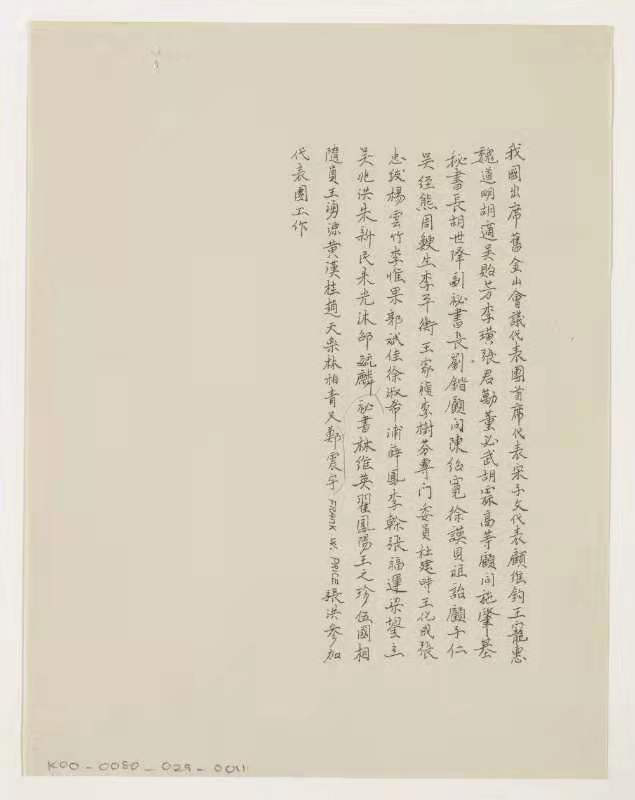 我國出席舊金山會議代表團首席代表宋子文代表顧維鈞王寵惠
魏道明胡適吳貽芳李璜張君勱董必武胡霖高等顧問施肇基
秘書長胡世澤副祕書長劉鍇顧問陳紹寬徐謨貝祖詒顧子仁
吳經熊周鯁生李平衡王家楨李樹芬專门委員杜建時王化成張
忠紱楊雲竹李惟果郭斌佳徐淑希浦薛鳳李榦張福運梁鋆立
吳兆洪朱新民朱光沐邵毓麟祕書林維英翟鳳陽王之珍伍國相
隨員王涌源黃漢柱趙天樂林柏青又鄭震宇 FRANK W. PRICE 張洪參加
代表團工作
K00-0080-029-0011